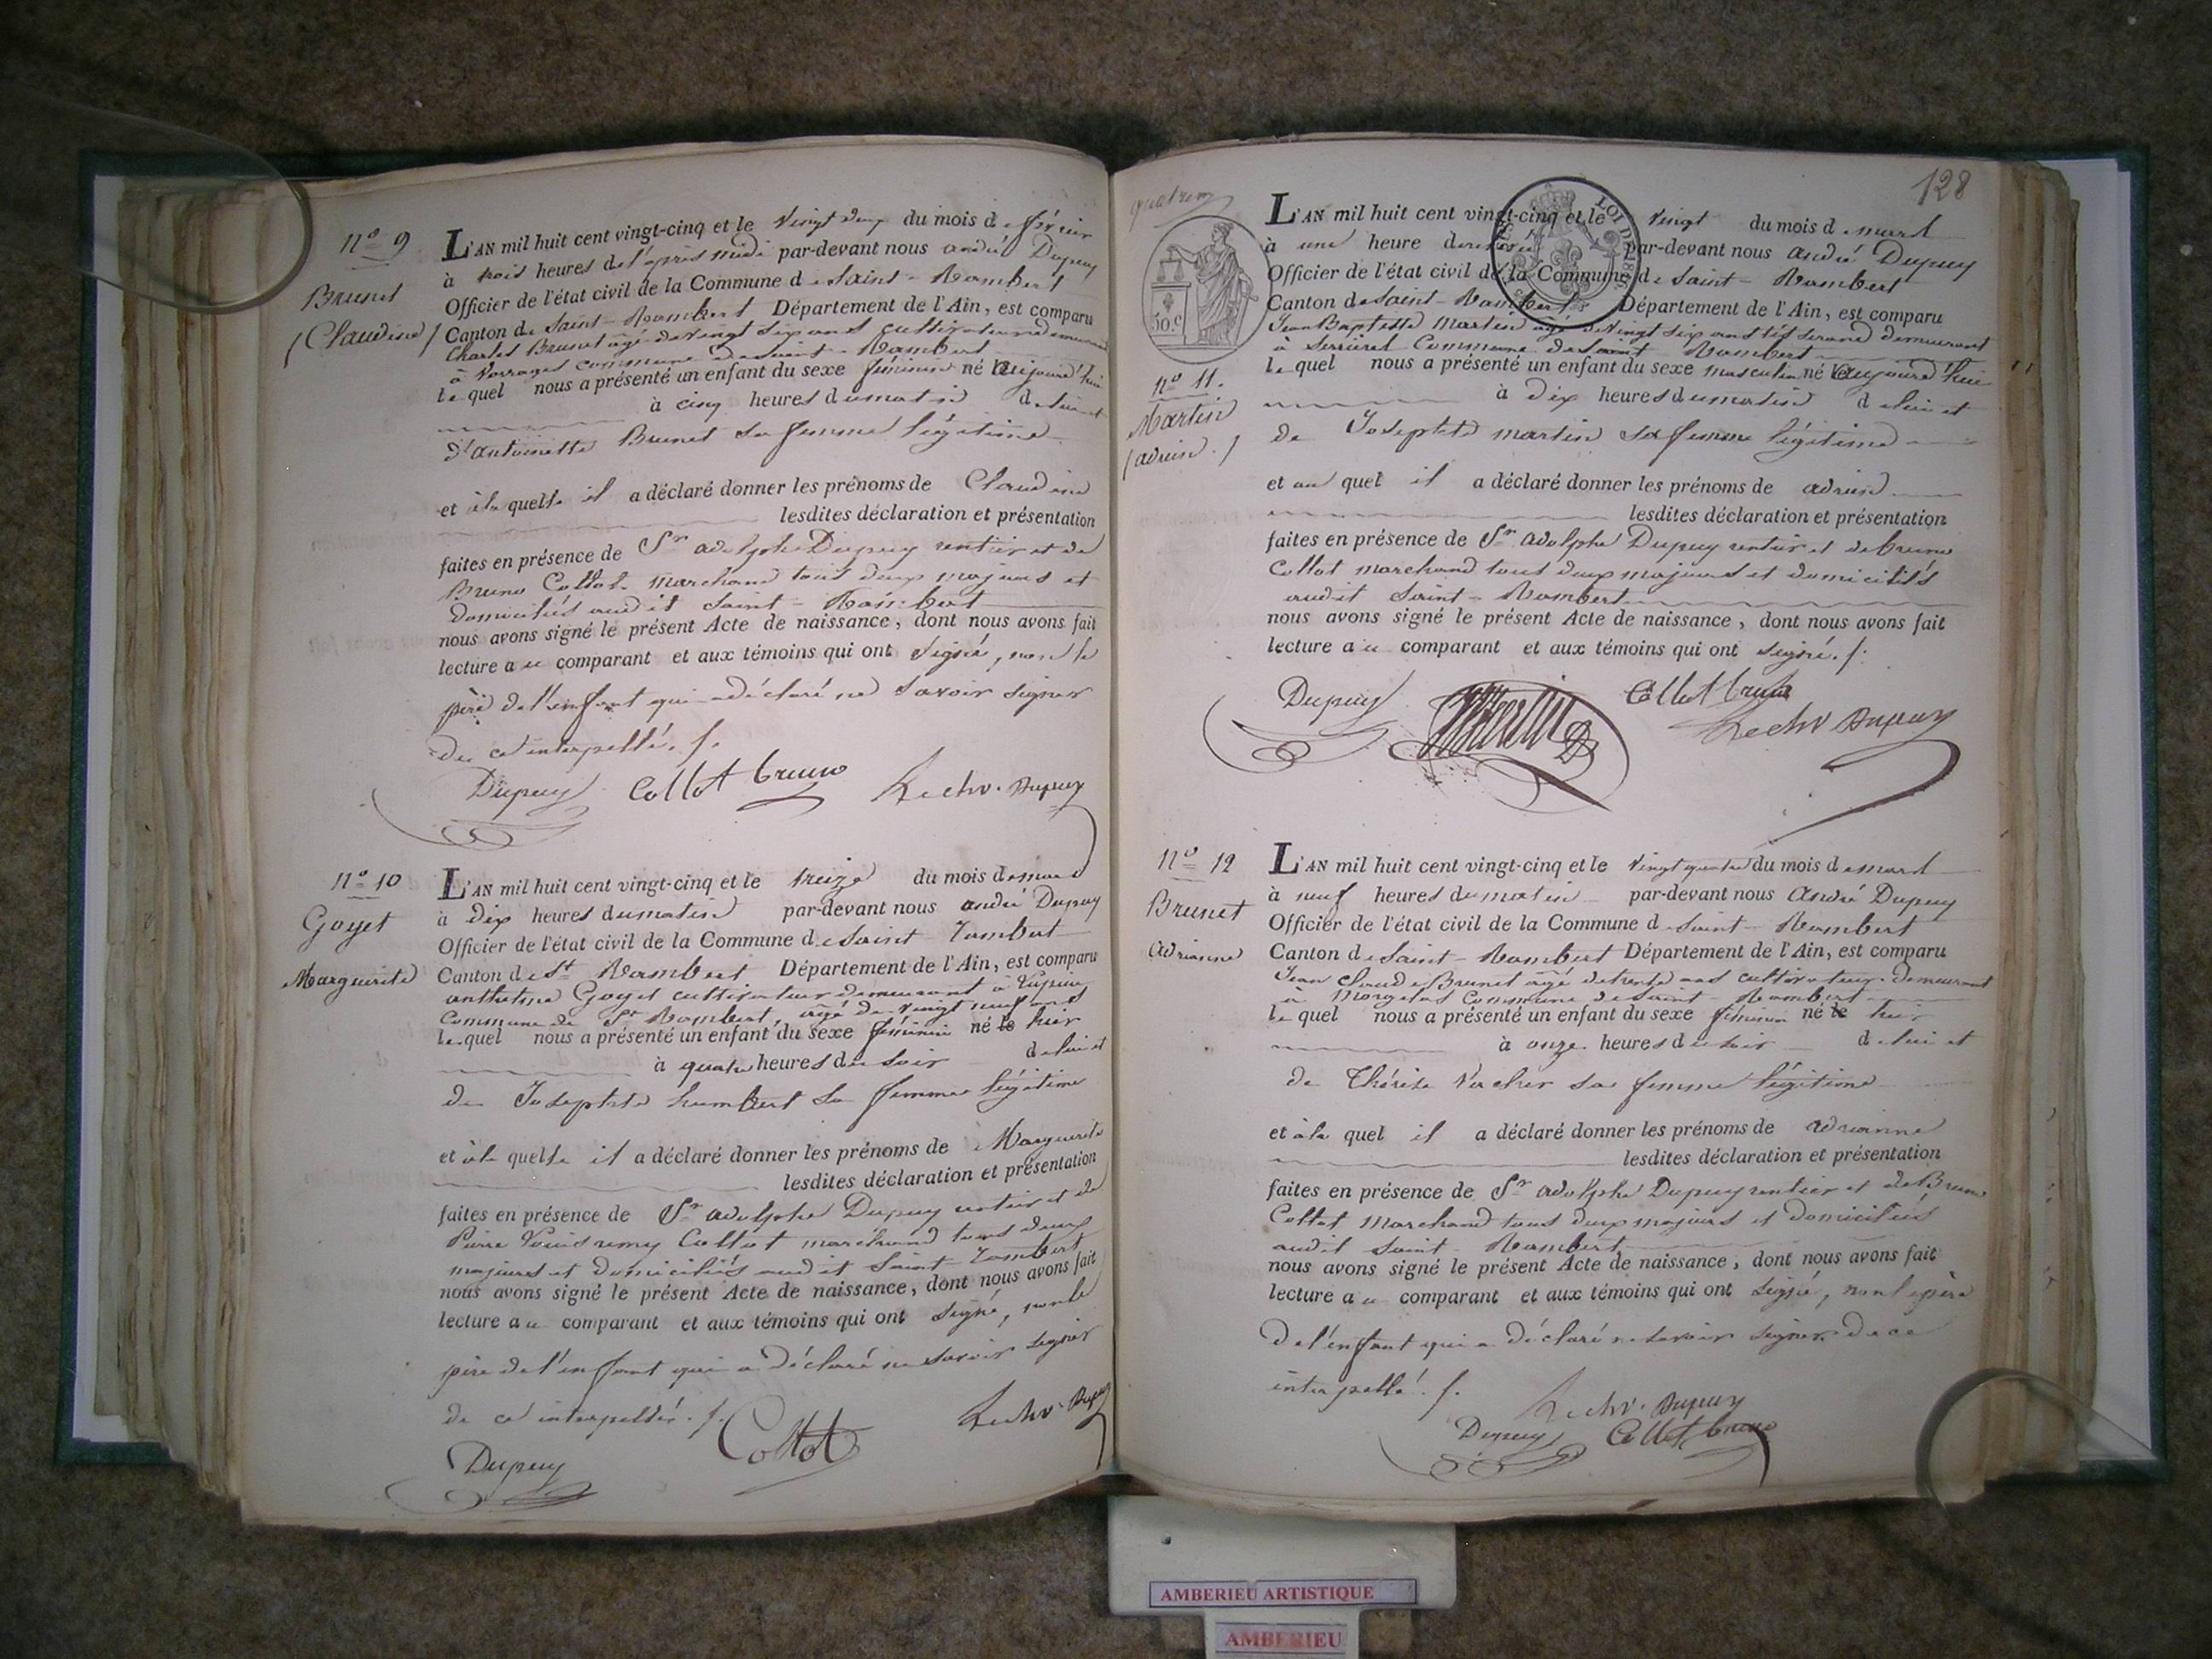 nº 9
Brunet
(Claudine)
L'AN mil huit cent vingt-cinq et le vingt deux du mois de février
à trois heures de l'après midi par-devant nous andré Dupuy
Officier de l'état civil de la Commune de Saint-Rambert
Canton de Saint-Rambert Département de l'Ain, est comparu
Charles Brunet agé de vingt six ans cultivateur demeurant
à Vorrages commune de Saint-Rambert
lequel nous a présenté un enfant du sexe féminin né aujourd'hui
à cinq heures du matin de lui et
d'antoinette Brunet sa femme légitime
et à la quelle il a déclaré donner les prénoms de Claudine
lesdites déclaration et présentation
faites en présence de Sr adolphe Dupuy rentier et de
Bruno Collot marchand tous deux majeurs et
domiciliés audit Saint-Rambert
nous avons signé le présent Acte de naissance, dont nous avons fait
lecture au comparant et aux témoins qui ont signé, non le
père de l'enfant qui a déclaré ne savoir signer
de ce interpellé.
Dupuy Collot bruno Dupuy
nº 10
Goyet
Marguerite
L'AN mil huit cent vingt-cinq et le treize du mois de mars
à dix heures du matin par-devant nous andré Dupuy
Officier de l'état civil de la Commune de Saint Rambert
Canton de St Rambert Département de l'Ain, est comparu
anthelme Goyet cultivateur demeurant à
Commune de St Rambert, agé de vingt neuf ans
lequel nous a présenté un enfant du sexe féminin né le hier
à quatre heures du soir de lui et
de Josephte humbert sa femme légitime
et à la quelle il a déclaré donner les prénoms de Marguerite
lesdites déclaration et présentation
faites en présence de Sr adolphe Dupuy rentier et de
Pierre Louis remy Collot marchand tous deux
majeurs et domiciliés audit Saint Rambert
nous avons signé le présent Acte de naissance, dont nous avons fait
lecture au comparant et aux témoins qui ont signé, non le
père de l'enfant qui a déclaré ne savoir signer
de ce interpellé.
Dupuy Collot Dupuy
128
50.c
LOI DE
nº 11.
Martin
(adrien.)
L'AN mil huit cent vingt-cinq et le vingt du mois de mars
à une heure par-devant nous andré Dupuy
Officier de l'état civil de la Commune de Saint-Rambert
Canton de Saint-Rambert Département de l'Ain, est comparu
Jean Baptiste Martin agé de vingt six ans tisserand demeurant
à Serrières Commune de Saint-Rambert
lequel nous a présenté un enfant du sexe masculin né aujourd'hui
à dix heures du matin de lui et
de Josephte martin sa femme légitime
et au quel il a déclaré donner les prénoms de adrien
lesdites déclaration et présentation
faites en présence de Sr adolphe Dupuy rentier et de bruno
Collot marchand tous deux majeurs et domiciliés
audit Saint-Rambert
nous avons signé le présent Acte de naissance, dont nous avons fait
lecture au comparant et aux témoins qui ont signé.
Dupuy Martin Collot bruno
Dupuy
nº 12
Brunet
adrianne
L'AN mil huit cent vingt-cinq et le vingt quatre du mois de mars
à neuf heures du matin par-devant nous andré Dupuy
Officier de l'état civil de la Commune de Saint-Rambert
Canton de Saint-Rambert Département de l'Ain, est comparu
Jean Claude Brunet agé de trente ans cultivateur demeurant
à Morgelas Commune de Saint-Rambert
lequel nous a présenté un enfant du sexe féminin né le hier
à onze heures du soir de lui et
de Thérèse Vacher sa femme légitime
et à la quel il a déclaré donner les prénoms de adrianne
lesdites déclaration et présentation
faites en présence de Sr adolphe Dupuy rentier et de Bruno
Collot marchand tous deux majeurs et domiciliés
audit Saint-Rambert
nous avons signé le présent Acte de naissance, dont nous avons fait
lecture au comparant et aux témoins qui ont signé, non le père
de l'enfant qui a déclaré ne savoir signer de ce
interpellé.
Dupuy
Dupuy Collot bruno
AMBERIEU ARTISTIQUE
AMBERIEU